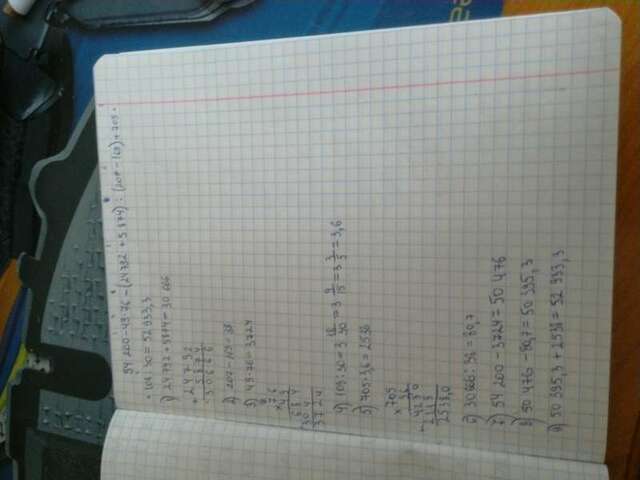 54 200 - 49·76 - (24792 + 5874) : (207 - 169) + 705 ·
· 108 : 30 = 52 933,3
1) 24 792 + 5874 = 30 666
24792
+ 5874
30666
2) 207 - 169 = 38
3) 49·76 = 3724
76
× 49
684
304
3724
4) 108 : 30 = 3 18/30 = 3 9/15 = 3 3/5 = 3,6
5) 705·3,6 = 2538
705
× 3,6
4230
2115
2538,0
6) 30666 : 38 = 80,7
7) 54 200 - 3724 = 50 476
8) 50 476 - 80,7 = 50 395,3
9) 50 395,3 + 2538 = 52 933,3